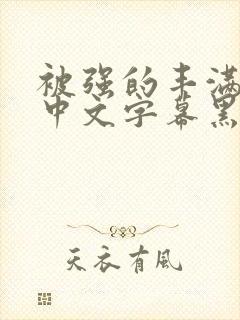 被强的丰满
中文字幕黑
天衣有风